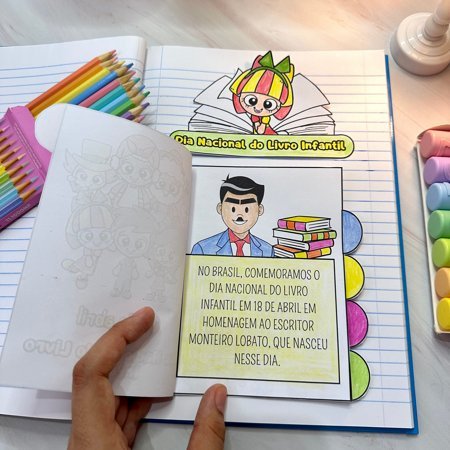 Dia Nacional do Livro Infantil
NO BRASIL, COMEMORAMOS O
DIA NACIONAL DO LIVRO
INFANTIL EM 18 DE ABRIL EM
HOMENAGEM AO ESCRITOR
MONTEIRO LOBATO, QUE NASCEU
NESSE DIA.